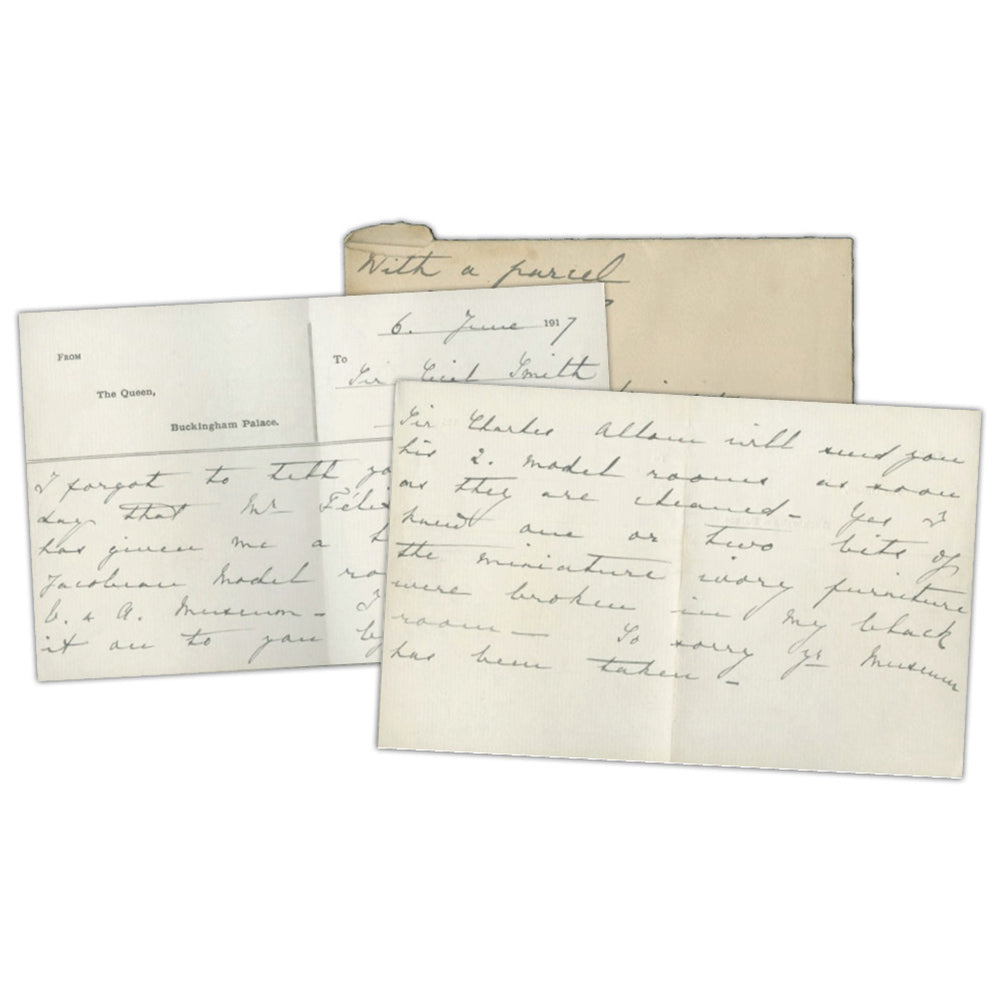 With a parcel
6. June 1917
FROM
The Queen,
Buckingham Palace.
To
Sir Cecil Smith
I forgot to tell yo
day that Mr Félix
has given me a
Jacobean Model ro
V. & A. Museum - I
it on to you by
Sir Charles Allom will send you
his 2. model rooms as soon
as they are cleaned - Yes I
knew one or two bits of
the miniature ivory furniture
were broken in my black
room - So sorry yr Museum
has been taken -